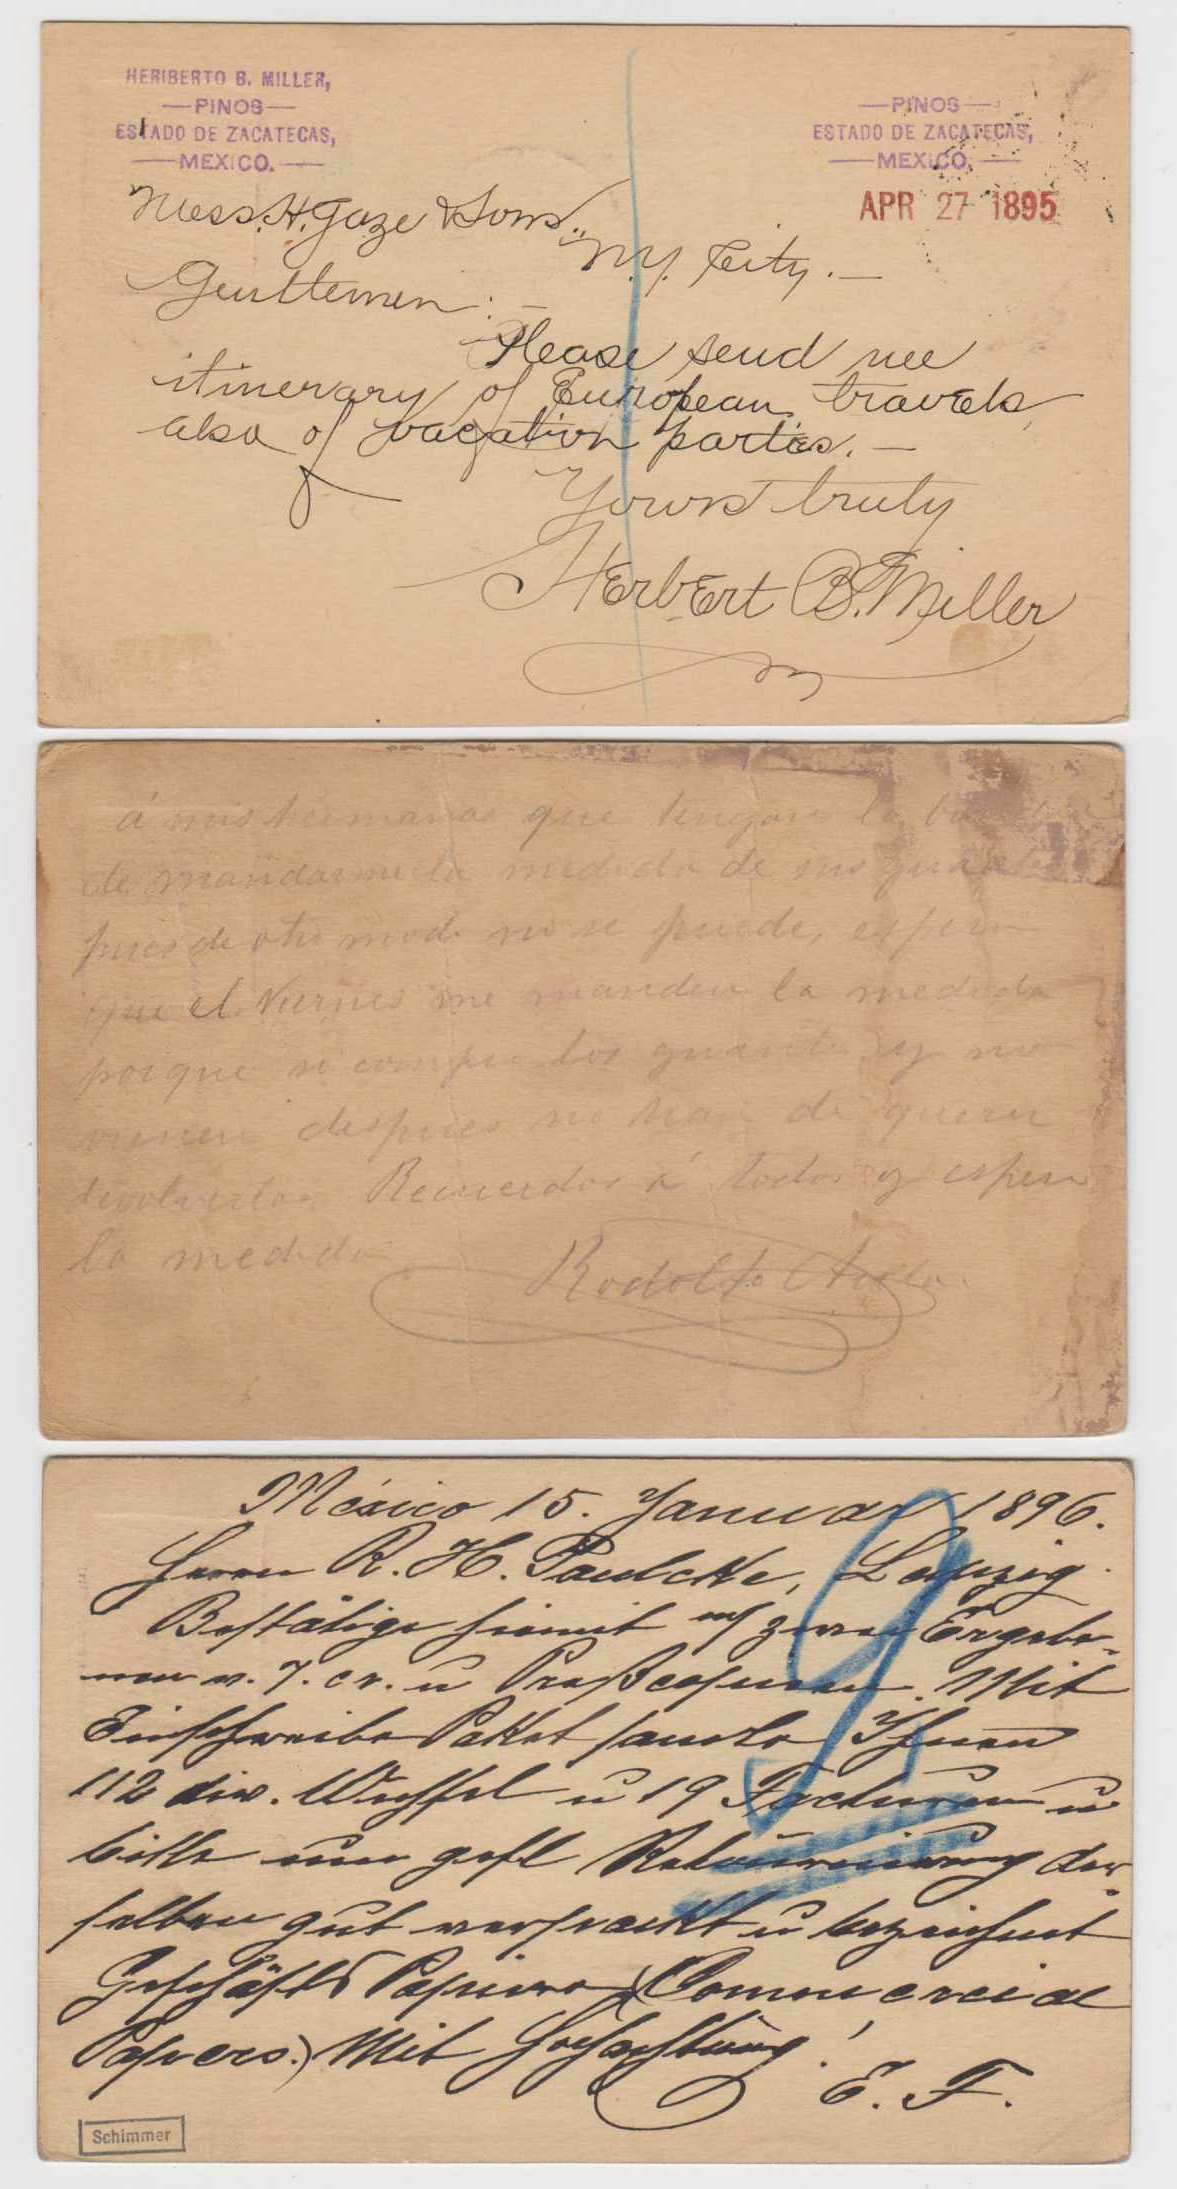 HERIBERTO B. MILLER,
—PINOS—
ESTADO DE ZACATECAS,
—MEXICO.—
—PINOS—
ESTADO DE ZACATECAS,
—MEXICO,—
APR 27 1895
Mess. H. Gaze & Sons.,
N.Y. City. —
Gentlemen: —
Please send me
itinerary of European travels,
also of vacation parties. —
Yours truly
Herbert B. Miller
á mis hermanas que tengan la
de mandarme la medida de sus
pues de otro modo no se puede, espero
que el Viernes me manden la medida
porque si compro los guantes y no
vienen despues no han de querer
devolverlos. Recuerdos á todos y espero
la medida
Rodolfo
México 15. Januar 1896.
Herrn R. H. Paulcke, Leipzig.
Bestätige hiemit mf zwei Ergebe-
nen v. 7. cr. u
Mit
Einschreibe Paket sandte Ihnen
112 div. Wechsel u 19 Facturen u
bitte um gefl Retournierung der-
selben gut verpackt u bezeichnet
Geschäfts Papiere (Commercial
Papers.) Mit Hochachtung!
E. F.
Schimmer